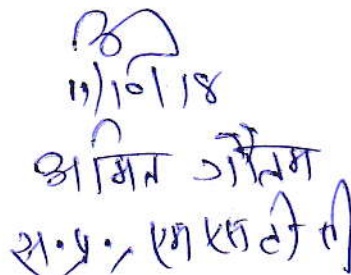 11/10/18
अमित गौतम
स.प्र., एम एम टी सी